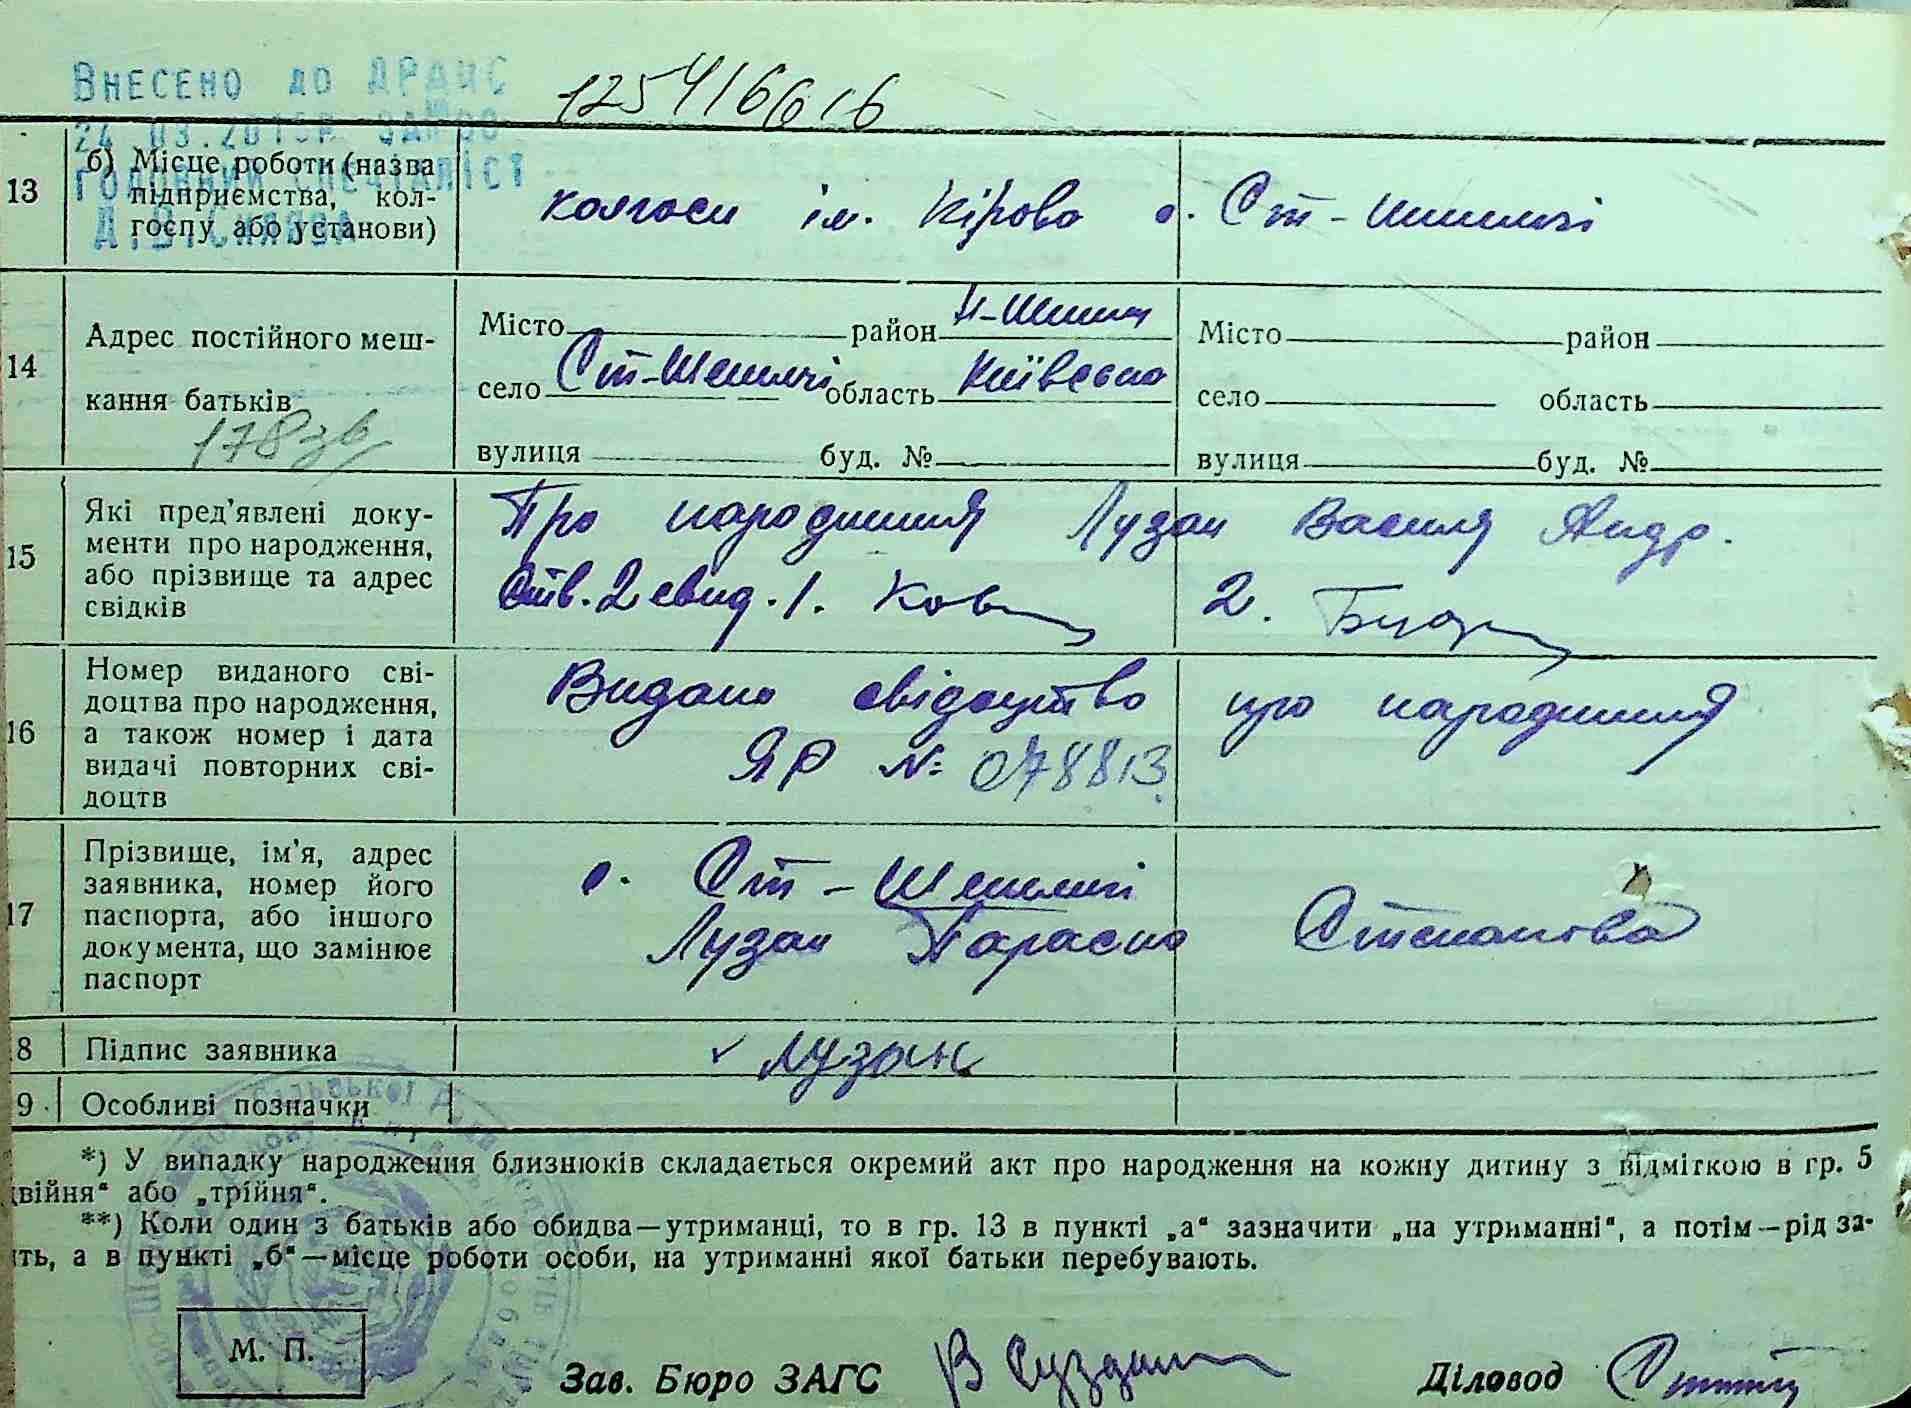 Внесено до ДРАЦС
1254166616
24.03.2015р.
головний спеціаліст
13
б) Місце роботи (назва
підприємства, кол-
госпу або установи)
колгосп ім. Кірова с. Ст-Шепеличі
14
Адрес постійного меш-
кання батьків
178зв
Місто район Н-Шепел
село Ст-Шепеличі область Київська
вулиця буд. №
Місто район
село область
вулиця буд. №
15
Які пред'явлені доку-
менти про народження,
або прізвище та адрес
свідків
Про народження Лузан Василя Андр.
Ств. 2 свид. 1. 2.
16
Номер виданого сві-
доцтва про народження,
а також номер і дата
видачі повторних сві-
доцтв
Видано свідоцтво про народження
ЯР № 078813
17
Прізвище, ім'я, адрес
заявника, номер його
паспорта, або іншого
документа, що замінює
паспорт
с. Ст-Шепеличі
Лузан Параска Степанова
8
Підпис заявника
Лузан
9
Особливі позначки
*) У випадку народження близнюків складається окремий акт про народження на кожну дитину з відміткою в гр. 5
двійня" або „трійня".
**) Коли один з батьків або обидва—утриманці, то в гр. 13 в пункті „а" зазначити „на утриманні", а потім—рід за-
ть, а в пункті „б"—місце роботи особи, на утриманні якої батьки перебувають.
М. П.
Зав. Бюро ЗАГС
Діловод